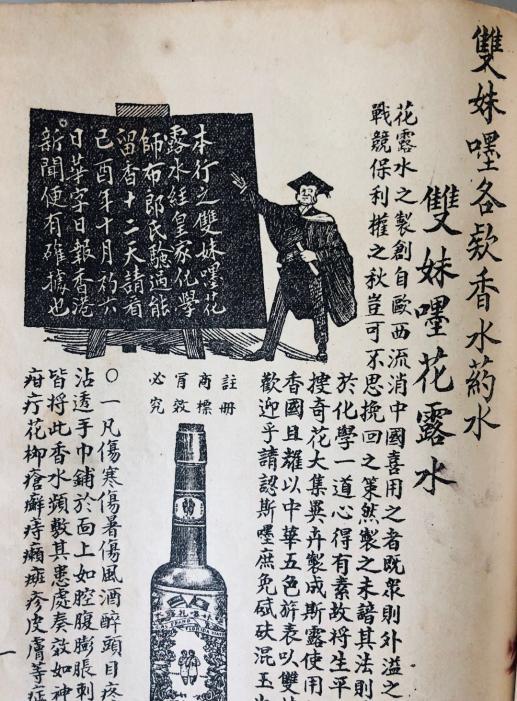 雙妹嚜各欵香水葯水
雙妹嚜花露水
花露水之製創自歐西流消中國喜用之者既衆則外溢之
戰競保利權之秋豈可不思挽回之策然製之未諳其法則
於化學一道心得有素故将生平
搜奇花大集異卉製成斯露使用
香國且耀以中華五色旂表以雙妹
歡迎乎請認斯嚜庶免碔砆混玉
本行之雙妹嚜花
露水經皇家化學
師布郎民驗過能
留香十二天請看
己酉年十月初六
日華字日報香港
新聞便有確據也
註冊
商標
冒效
必究
〇一凡傷寒傷暑傷風酒醉頭目疼
沾透手巾鋪於面上如腔腹膨脹刺
皆将此香水頻敷其患處奏效如神
疳疔花柳瘡癬痔癩斑疹皮膚等症